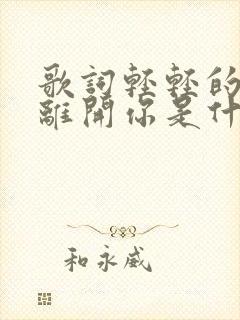 歌詞輕輕的
離開你是什
和永威